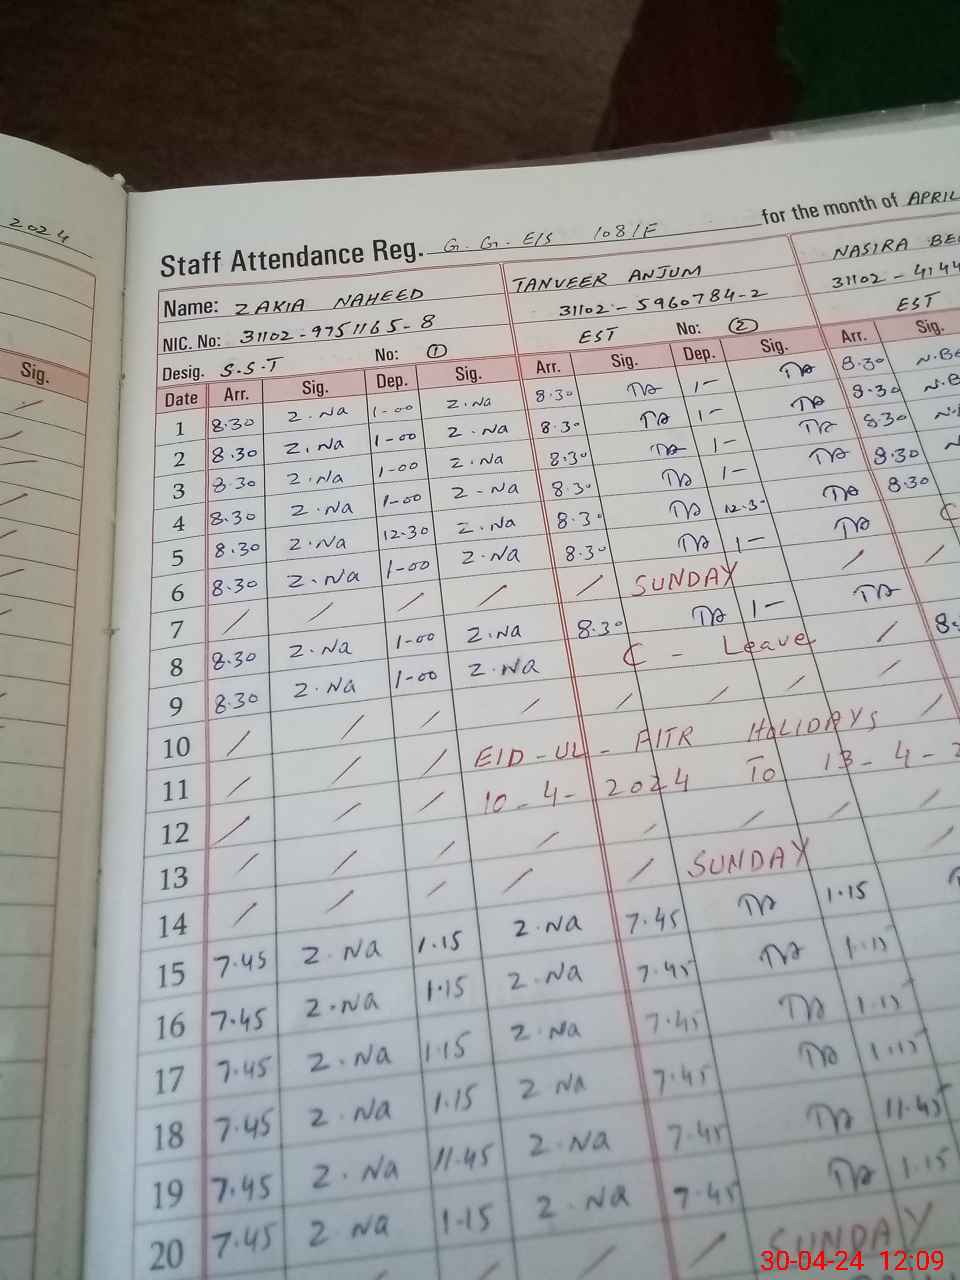 2024
Sig.
Staff Attendance Reg. G. G. E/S 108/F for the month of APRIL
Name: ZAKIA NAHEED TANVEER ANJUM NASIRA
NIC. No: 31102-9751165-8 31102-5960784-2 31102-4144
Desig. S.S.T No: 1 EST No: 2 EST
Date Arr. Sig. Dep. Sig. Arr. Sig. Dep. Sig. Arr. Sig.
1 8.30 Z.Na 1-00 Z.Na 8.30 TA 1- TA 8.30
2 8.30 Z.Na 1-00 Z.Na 8.30 TA 1- TA 8.30
3 8.30 Z.Na 1-00 Z.Na 8.30 TA 1- TA 8.30
4 8.30 Z.Na 1-00 Z-Na 8.30 TA 1- TA 8.30
5 8.30 Z.Na 12.30 Z.Na 8.30 TA 12.30 TA 8.30
6 8.30 Z.Na 1-00 Z.Na 8.30 TA 1- TA C
7 / / / / / SUNDAY / /
8 8.30 Z.Na 1-00 Z.Na 8.30 TA 1- TA
9 8.30 Z.Na 1-00 Z.Na C - Leave /
10 / / / / / / / /
11 / / / EID-UL-FITR HOLIDAYS /
12 / / / 10-4-2024 To 13-4-2
13 / / / / / / / /
14 / / / / / SUNDAY /
15 7.45 Z.Na 1.15 Z.Na 7.45 TA 1.15
16 7.45 Z.Na 1.15 Z.Na 7.45 TA 1.15
17 7.45 Z.Na 1.15 Z.Na 7.45 TA 1.15
18 7.45 Z.Na 1.15 Z Na 7.45 TA 1.15
19 7.45 Z.Na 11.45 Z.Na 7.45 TA 11.45
20 7.45 Z.Na 1.15 Z.Na 7.45 TA 1.15
/ / / / / SUNDAY
30-04-24 12:09